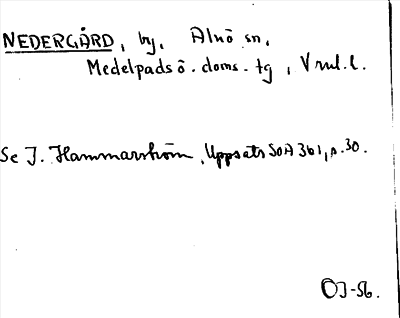 NEDERGÅRD, by, Alnö sn.
Medelpads ö. doms. tg, Vnl. l.
Se J. Hammarström, Uppsats SOA 361, s. 30.
OJ-56.